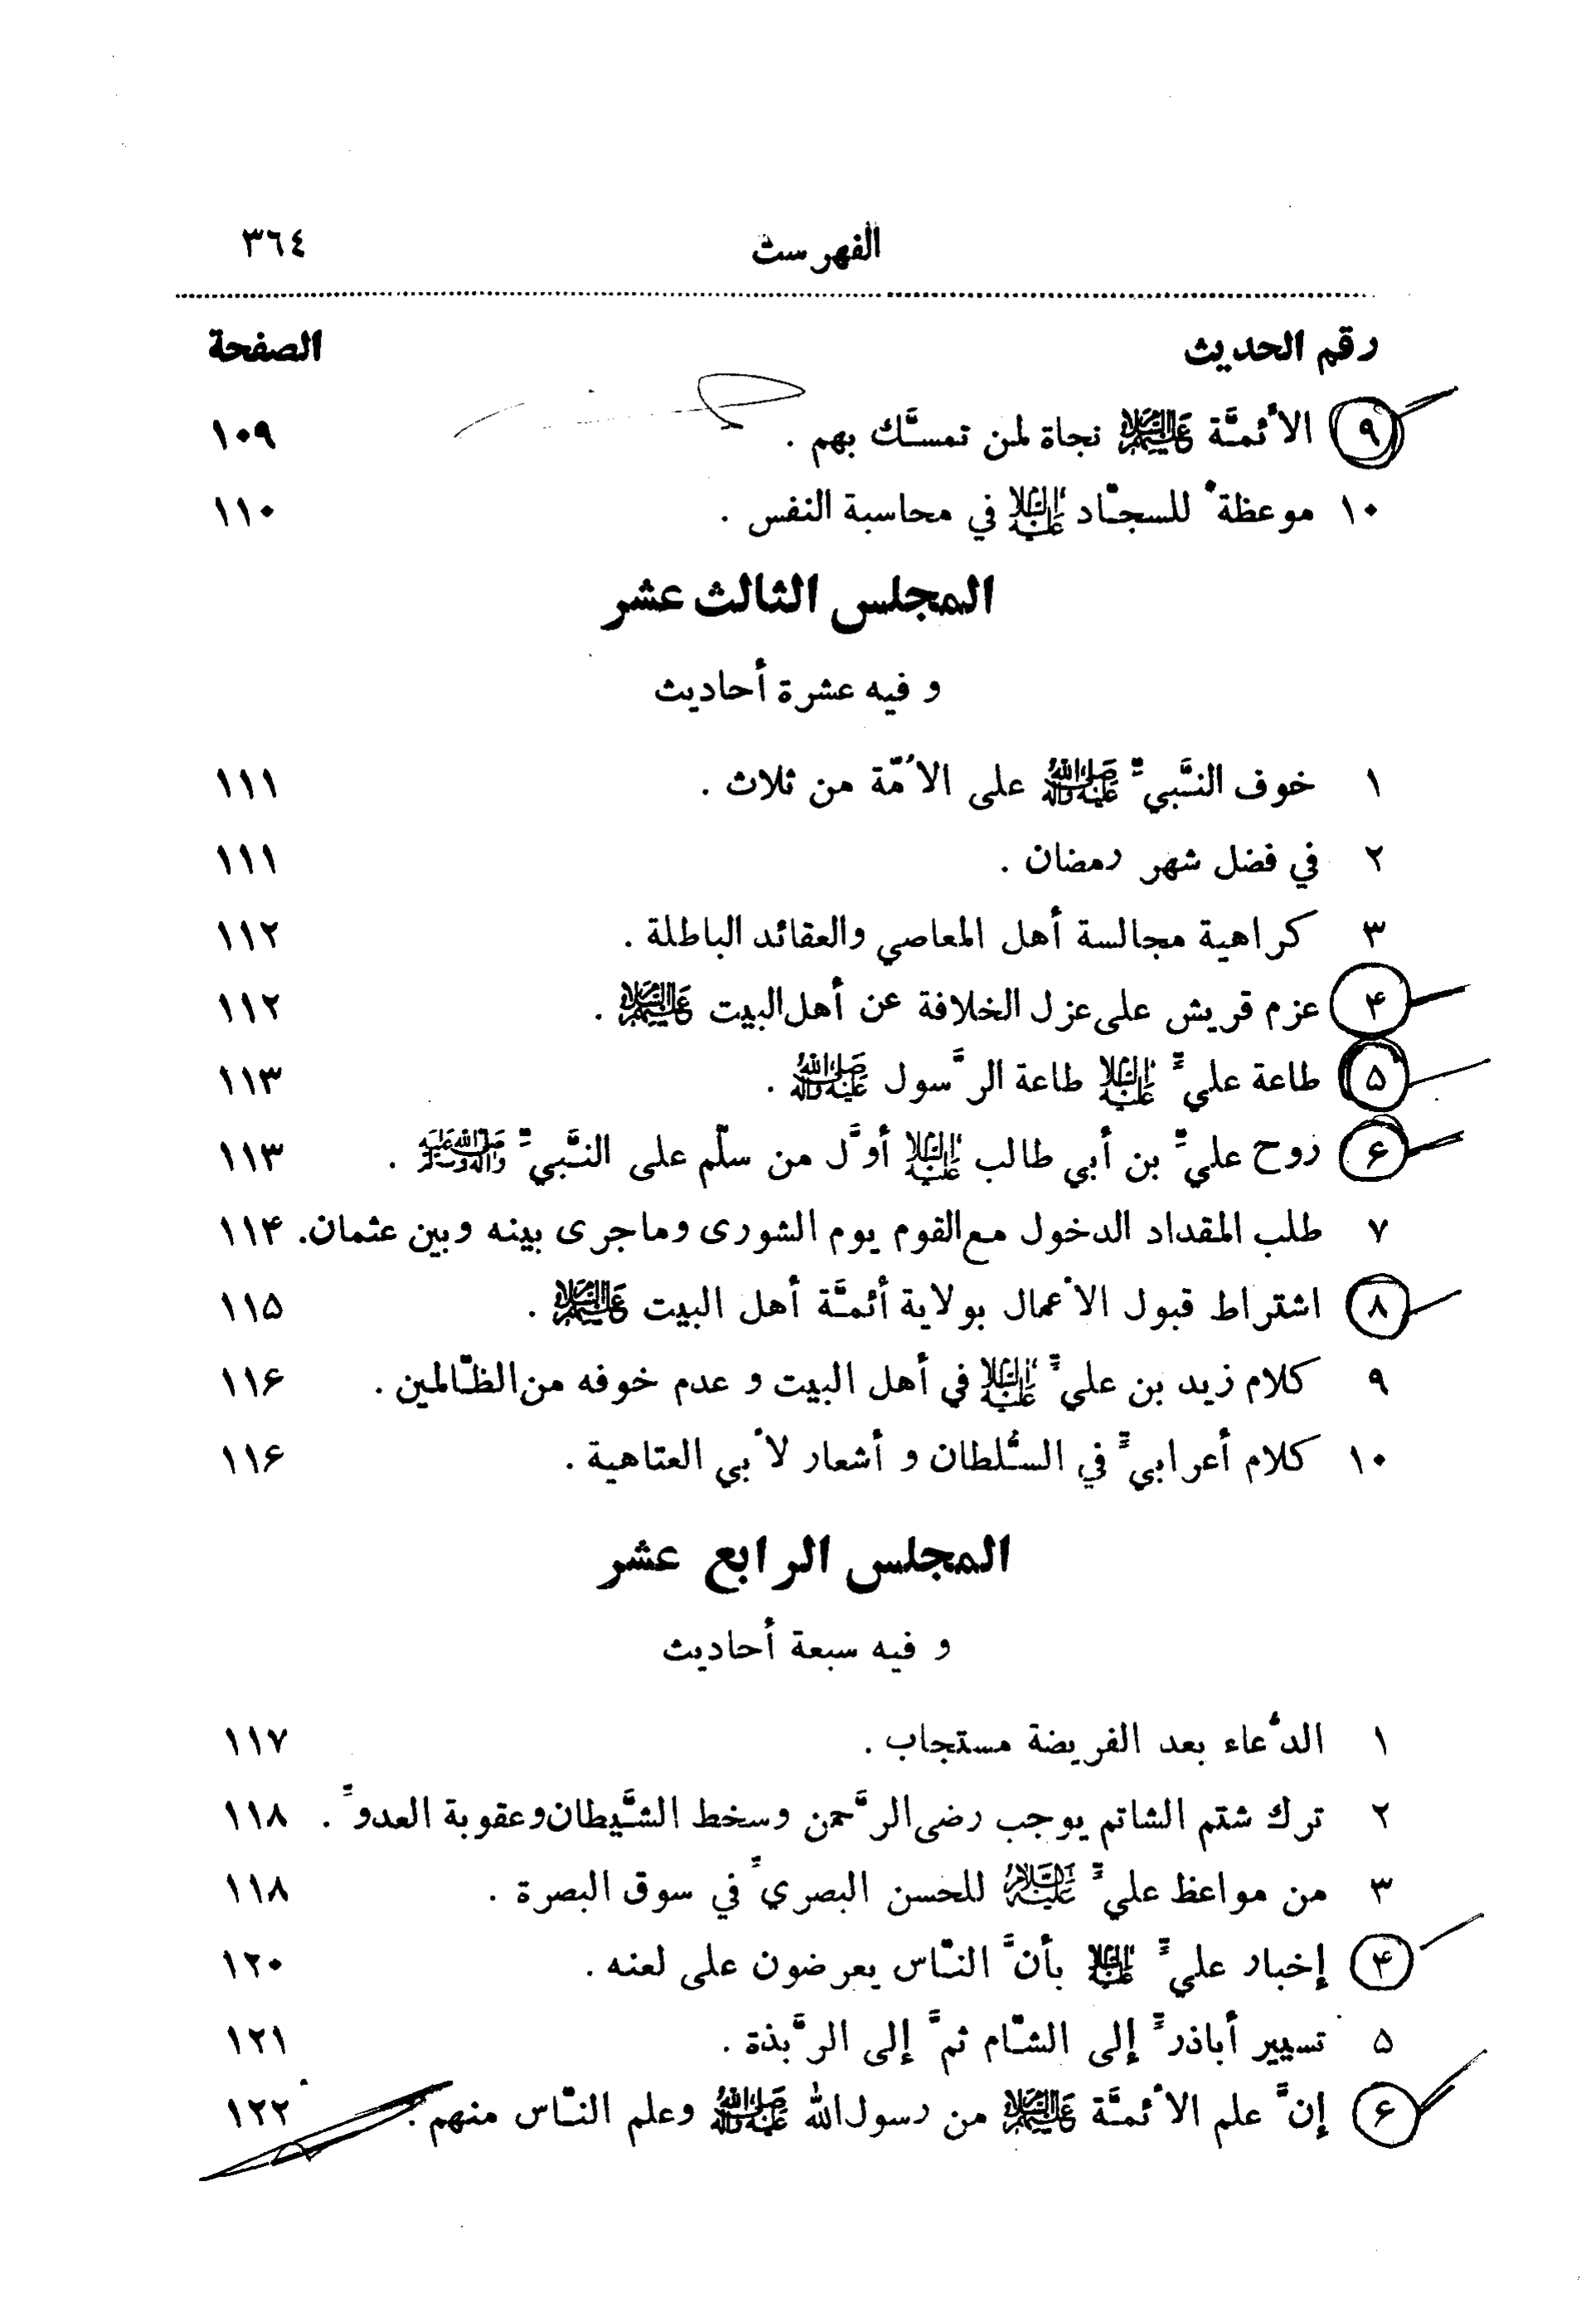 الفهرست ٣٦٤
رقم الحديث الصفحة
٩ الأئمَّة عليهم‌السلام نجاة لمن تمسَّك بهم . ١٠٩
١٠ موعظةٌ للسجّاد عليه‌السلام في محاسبة النفس . ١١٠
المجلس الثالث عشر
و فيه عشرة أحاديث
١ خوف النَّبيِّ صلى‌الله‌عليه‌وآله على الاُمّة من ثلاث . ١١١
٢ في فضل شهر رمضان . ١١١
٣ كراهية مجالسة أهل المعاصي والعقائد الباطلة . ١١٢
۴ عزم قريش على عزل الخلافة عن أهل البيت عليهم‌السلام . ١١٢
۵ طاعة عليٍّ عليه‌السلام طاعة الرَّسول صلى‌الله‌عليه‌وآله . ١١٣
۶ روح عليِّ بن أبي طالب عليه‌السلام أوَّل من سلّم على النَّبيِّ صلى‌الله‌عليه‌وآله‌وسلم . ١١٣
٧ طلب المقداد الدخول مع القوم يوم الشورى وماجرى بينه وبين عثمان. ١١۴
٨ اشتراط قبول الأعمال بولاية أئمَّة أهل البيت عليهم‌السلام . ١١۵
٩ كلام زيد بن عليٍّ عليه‌السلام في أهل البيت و عدم خوفه من الظّالمين . ١١۶
١٠ كلام أعرابيٍّ في السُّلطان و أشعار لأبي العتاهية . ١١۶
المجلس الرابع عشر
و فيه سبعة أحاديث
١ الدُّعاء بعد الفريضة مستجاب . ١١٧
٢ ترك شتم الشاتم يوجب رضى الرَّحمن وسخط الشَّيطان وعقوبة العدوِّ . ١١٨
٣ من مواعظ عليٍّ عليه‌السلام للحسن البصريِّ في سوق البصرة . ١١٨
۴ إخبار عليٍّ عليه‌السلام بأنَّ النّاس يعرضون على لعنه . ١٢٠
۵ تسيير أباذرٍّ إلى الشّام ثمَّ إلى الرَّبذة . ١٢١
۶ إنَّ علم الأئمَّة عليهم‌السلام من رسول الله صلى‌الله‌عليه‌وآله وعلم النّاس منهم . ١٢٢